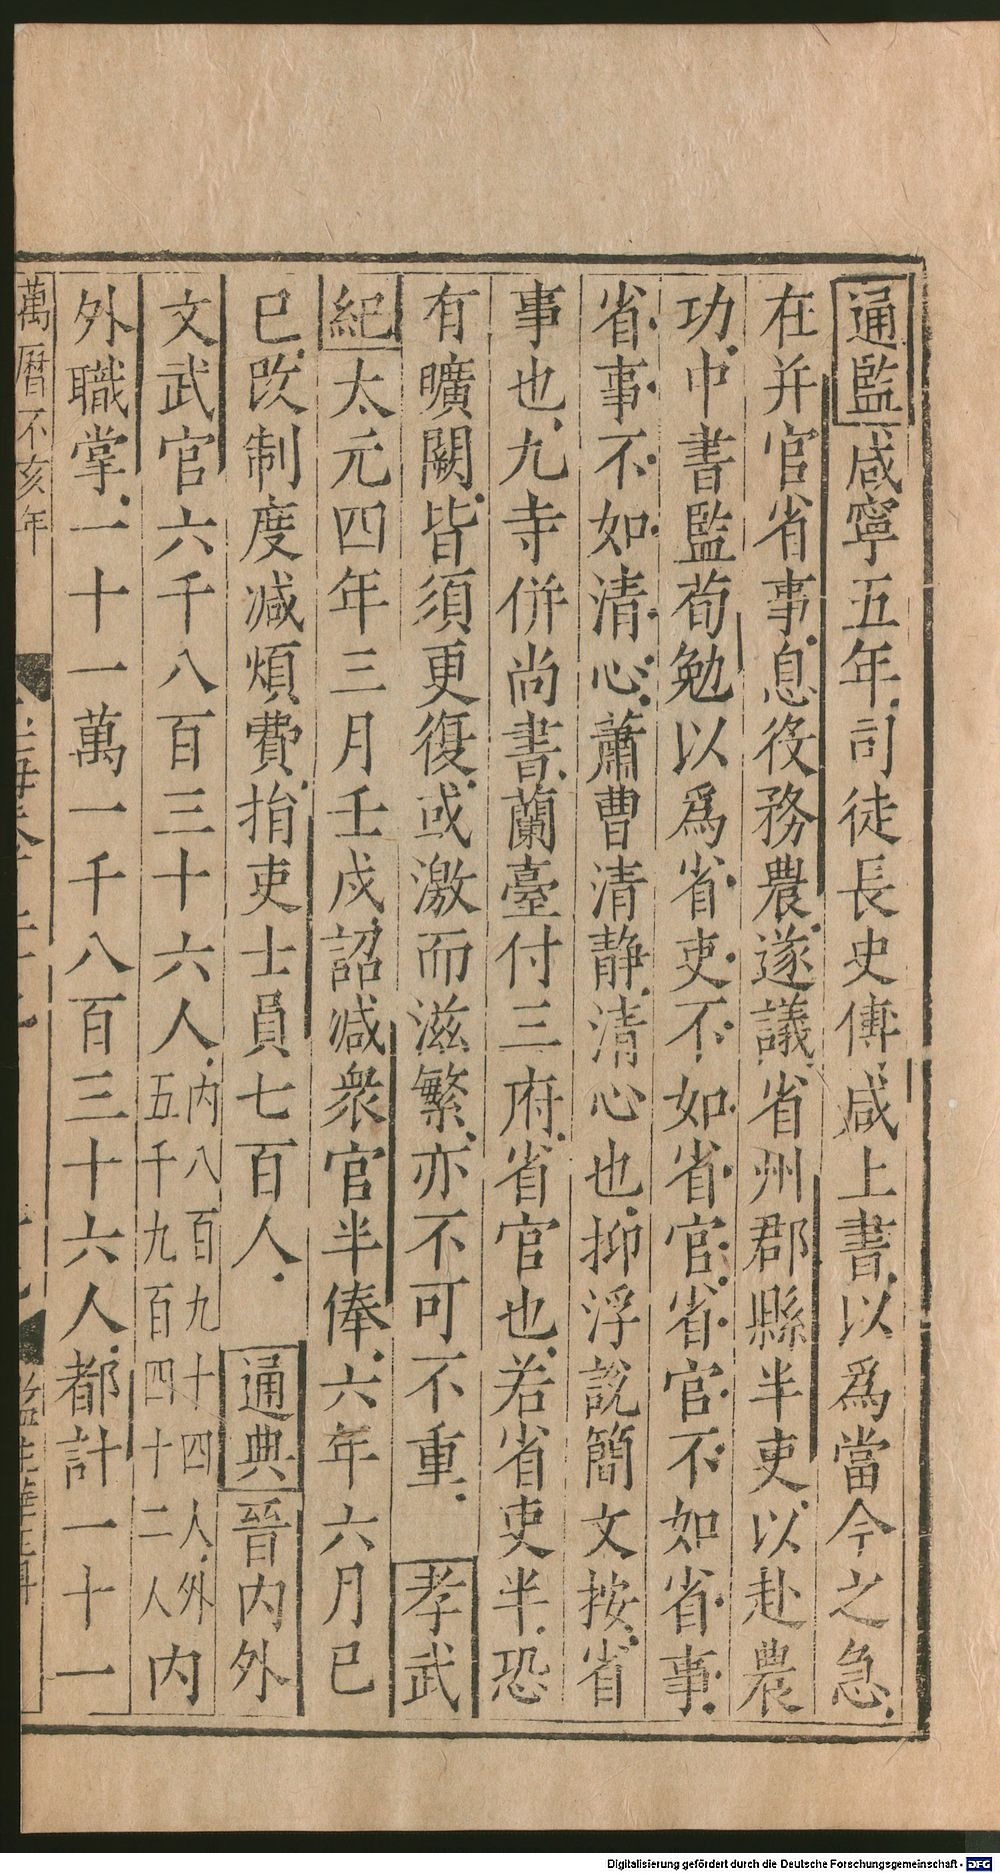 通監咸寧五年司徒長史傅咸上書以爲當今之急
在并官省事息役務農遂議省州郡縣半吏以赴農
功中書監荀勉以爲省吏不如省官省官不如省事
省事不如清心蕭曹清静清心也抑浮說簡文按省
事也九寺併尚書蘭臺付三府省官也若省吏半恐
有曠闕皆須更復或激而滋繁亦不可不重　孝武
紀太元四年三月壬戌詔减衆官半俸六年六月巳
巳改制度减煩費捐吏士員七百人　通典晉内外
文武官六千八百三十六人内八百九十四人外五千九百四十二人内
外職掌一十一萬一千八百三十六人都計一十一
萬曆丁亥年
Digitalisierung gefördert durch die Deutsche Forschungsgemeinschaft - DFG